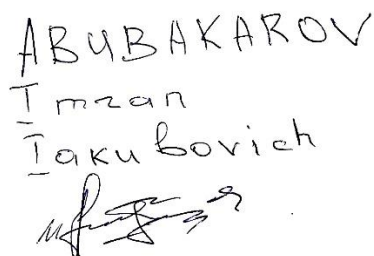 ABUBAKAROV
Imran
Iakubovich